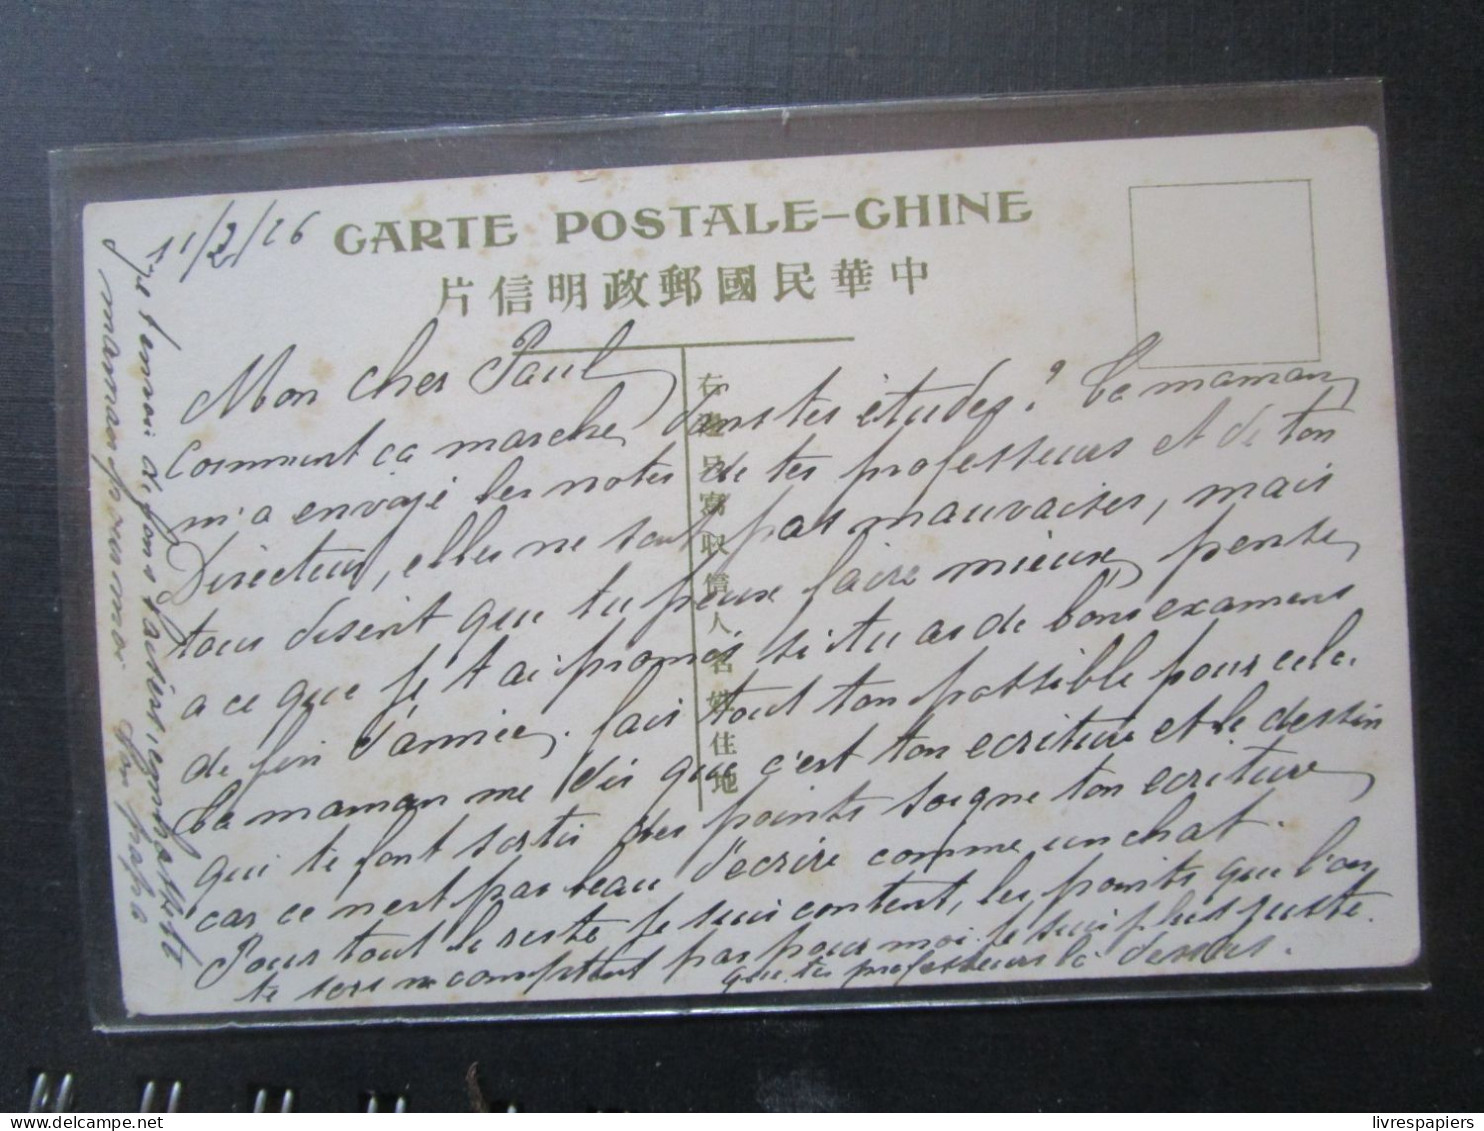 11/2/26
CARTE POSTALE-CHINE
片信明政郵國民華中
右邊只寫收信人名姓住地
Mon cher Paul
Comment ca marche dans tes études? Ta maman
m'a envoyé les notes de tes professeurs et de ton
Directeur, elles ne sont pas mauvaises, mais
tous disent que tu peux faire mieux, pense
a ce que je t'ai promis si tu as de bons examens
de fin d'année, fais tout ton possible pour cela.
Ta maman me dis que c'est ton ecriture et le dessin
qui te font sortir des points soigne ton ecriture
car ce n'est pas beau d'ecrire comme un chat.
Pour tout le reste je suis content, les points que l'on
te sors ne comptent pas pour moi je suis plus juste
que tes professeurs là dessus.
Je t'envoi de bons baisers, embrasse ta
maman pour moi Ton papa
livrespapiers